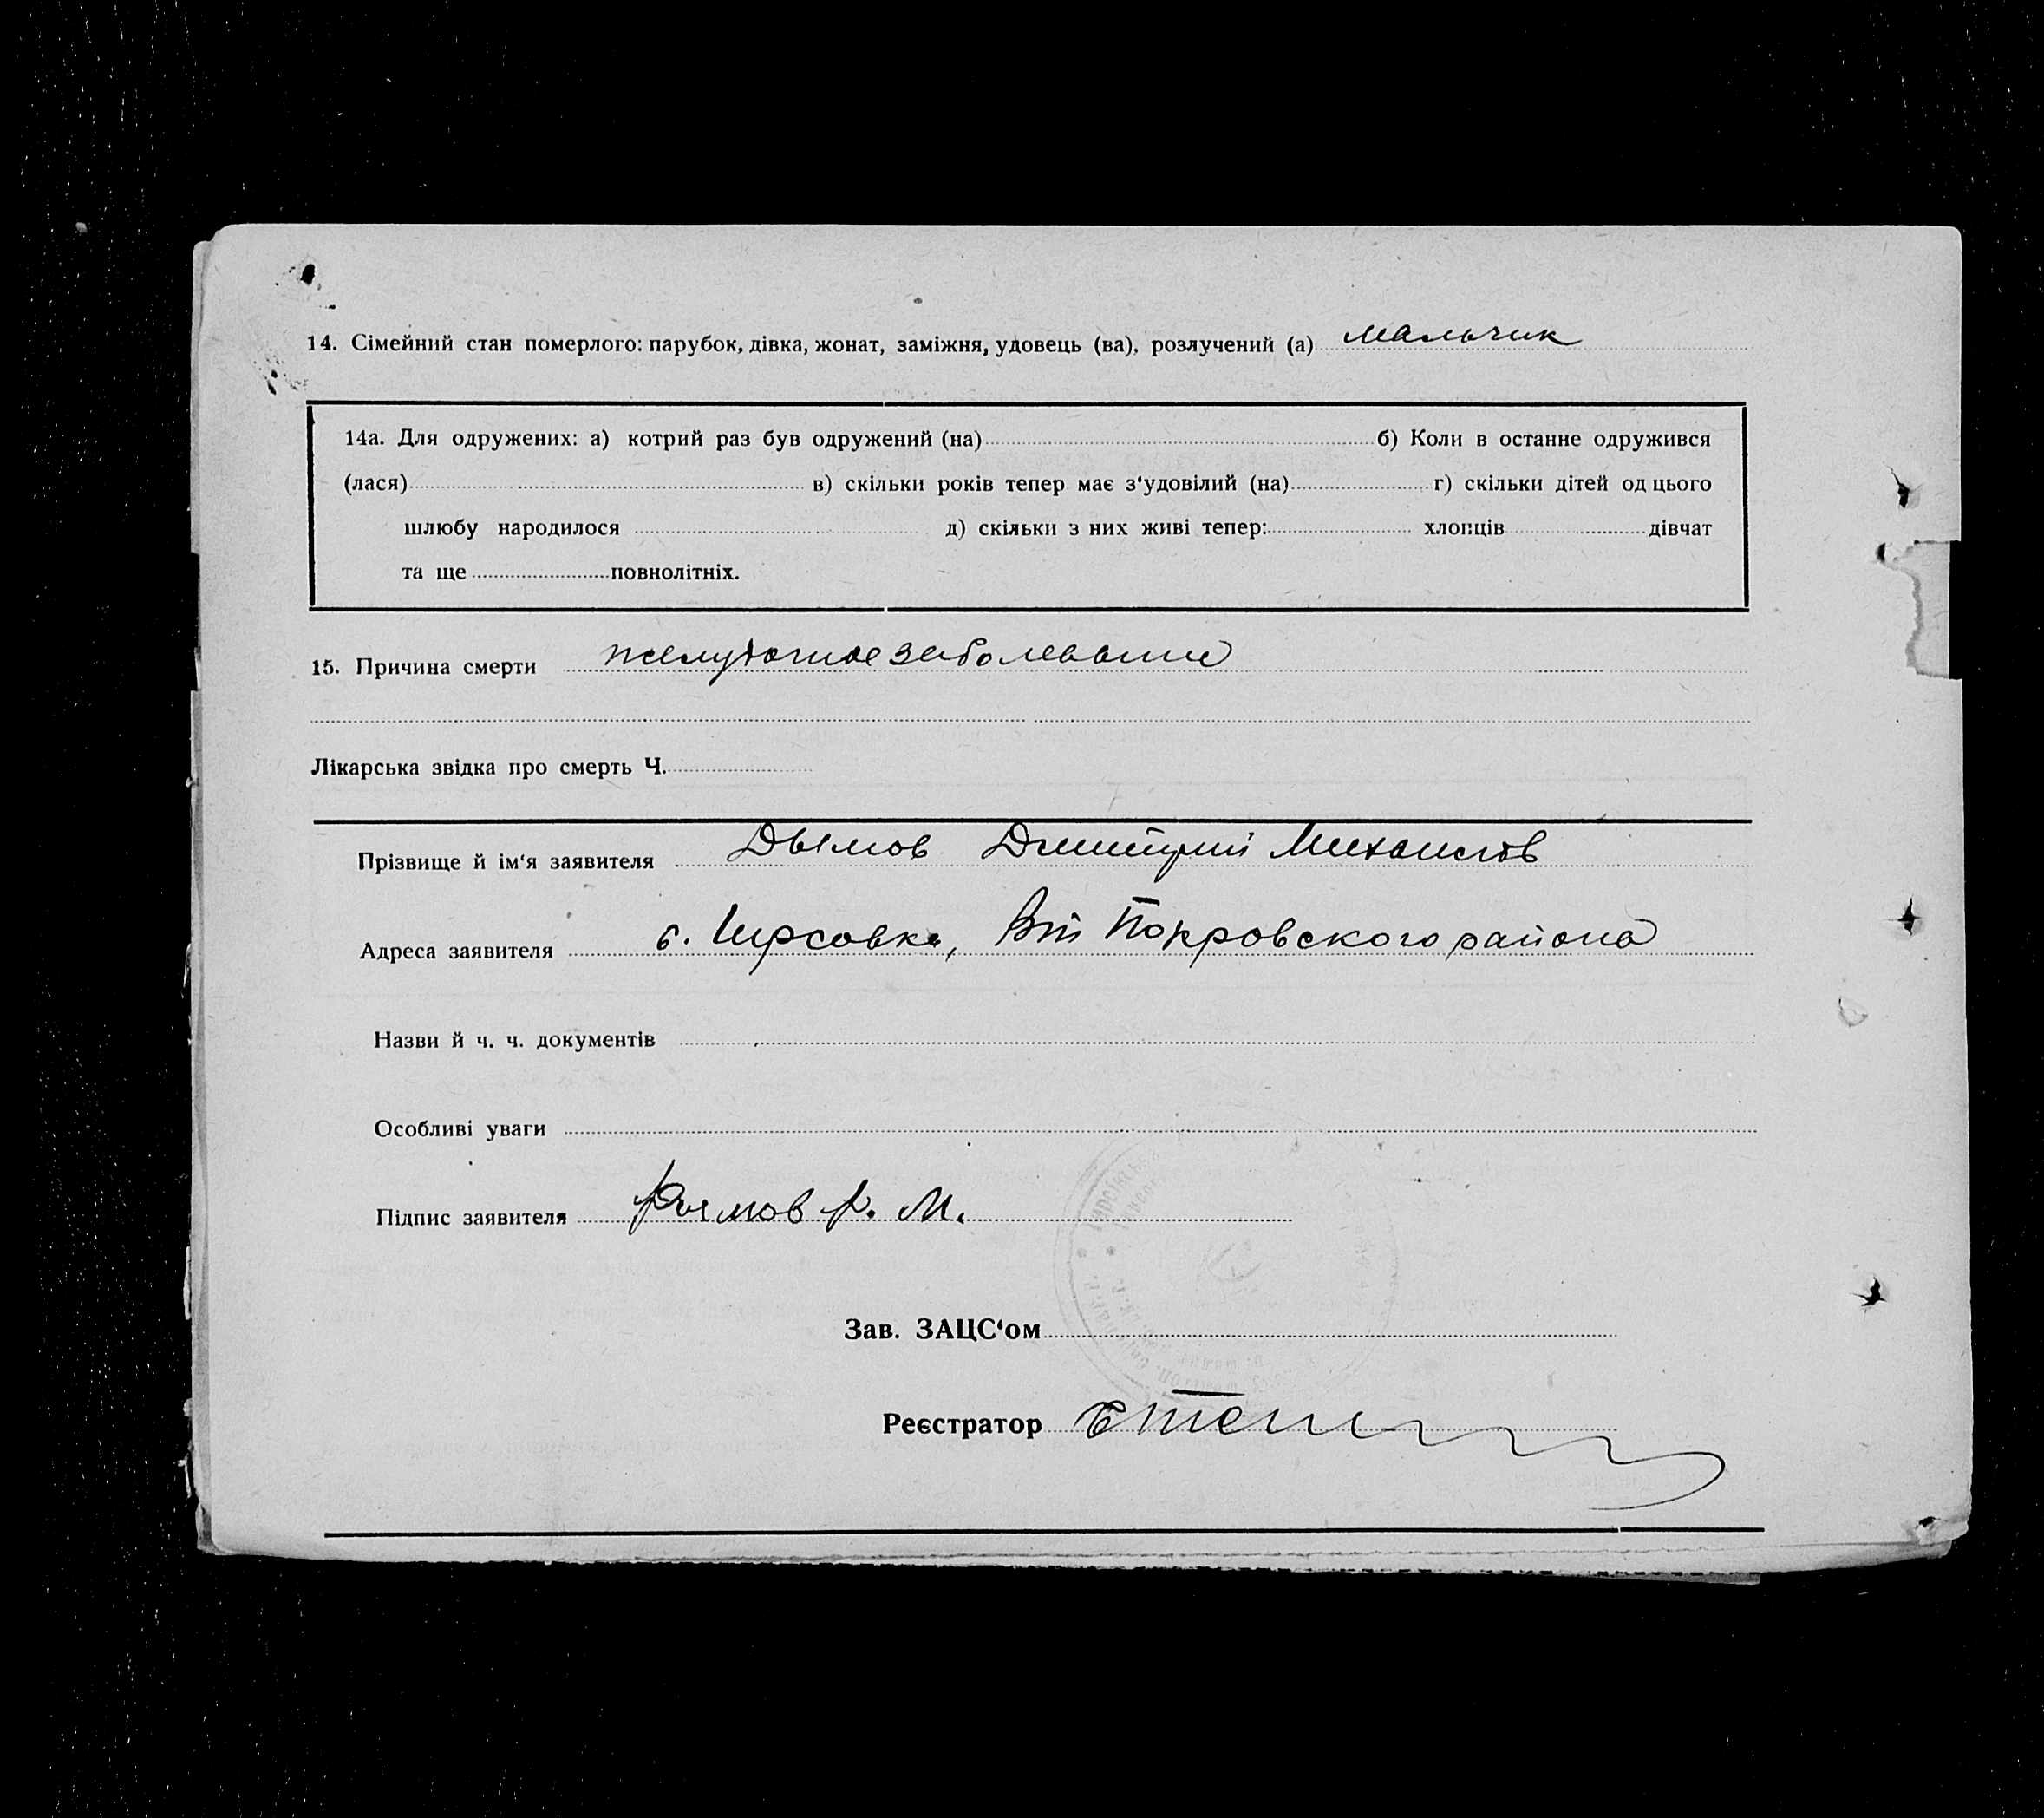 14. Сімейний стан померлого: парубок, дівка, жонат, заміжня, удовець (ва), розлучений (а) мальчик
14а. Для одружених: а) котрий раз був одружений (на) б) Коли в останне одружився
(лася) в) скільки років тепер має з‘удовілий (на) г) скільки дітей од цього
шлюбу народилося д) скільки з них живі тепер: хлопців дівчат
та ще повнолітніх.
15. Причина смерти желудочное заболевание
Лікарська звідка про смерть Ч.
Прізвище й ім‘я заявителя Дымов Дмитрий Михайлов
Адреса заявителя Покровского района
Назви й ч. ч. документів
Особливі уваги
Підпис заявителя Дымов Д. М.
Зав. ЗАЦС‘ом
Реєстратор